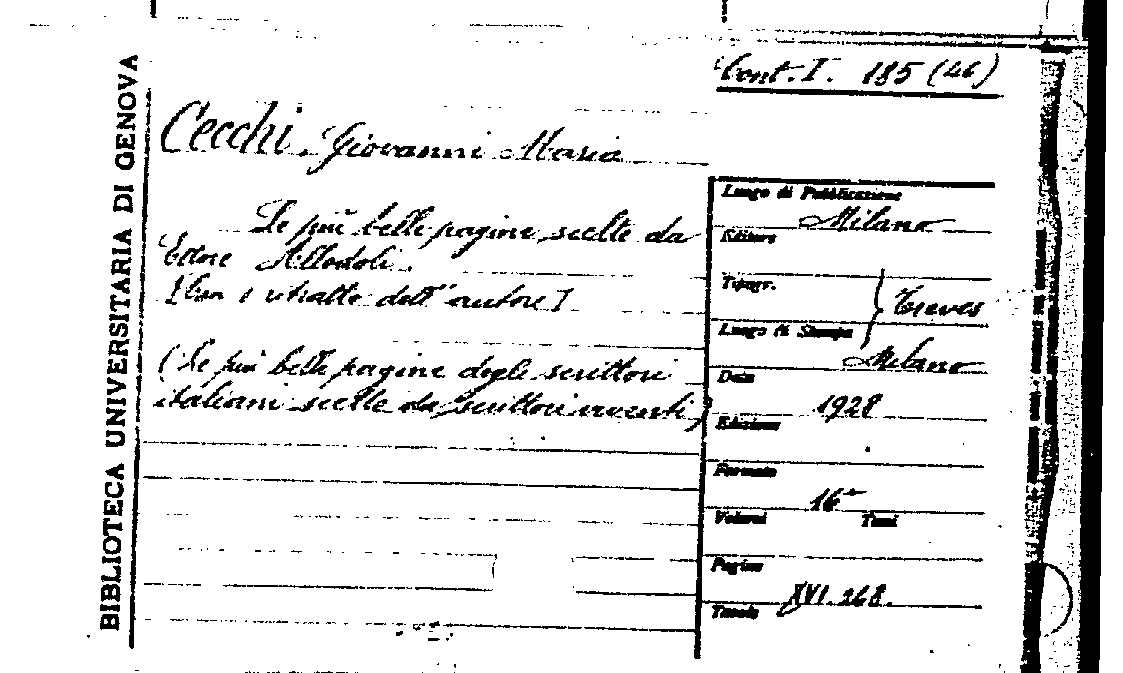 BIBLIOTECA UNIVERSITARIA DI GENOVA
Cont. I. 185 (46)
Cecchi, Giovanni Maria
Le più belle pagine scelte da
Ettore Allodoli.
[Con 1 ritratto dell'autore]
(Le più belle pagine degli scrittori
italiani scelte da scrittori viventi)
Luogo di Pubblicazione
Milano
Editore
Tipogr.
Treves
Luogo di Stampa
Milano
Data
1928
Edizione
Formato
16°
Volumi Tomi
Pagine
XVI. 268.
Tavole